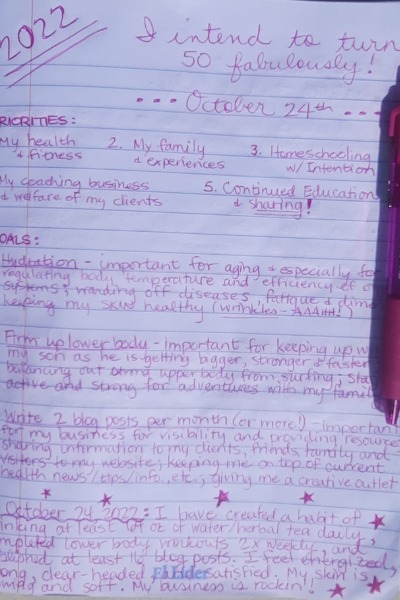 2022
I intend to turn
50 fabulously!
--- October 24th ---
RIORITIES:
My health & fitness
2. My family & experiences
3. Homeschooling w/ Intention
My coaching business & welfare of my clients
5. Continued Education & sharing!
OALS:
Hydration - important for aging & especially for
regulating body temperature and efficiency of
systems; warding off diseases, fatigue &
keeping my skin healthy (wrinkles - AAAHH!)
Firm up lower body - important for keeping up w/
my son as he is getting bigger, stronger & faster
balancing out strong upper body from surfing;
active and strong for adventures with my family
Write 2 blog posts per month (or more!) - important
for my business for visibility and providing resources
sharing information to my clients, friends, family and
visitors to my website; keeping me on top of current
health news/tips/info..etc.; giving me a creative outlet
October 24, 2022: I have created a habit of
inking at least oz of water/herbal tea daily,
mpleted lower body workouts 2x weekly, and
at least 16 blog posts. I feel energized,
ong, clear-headed satisfied. My skin is
and soft. My business is rockin'!